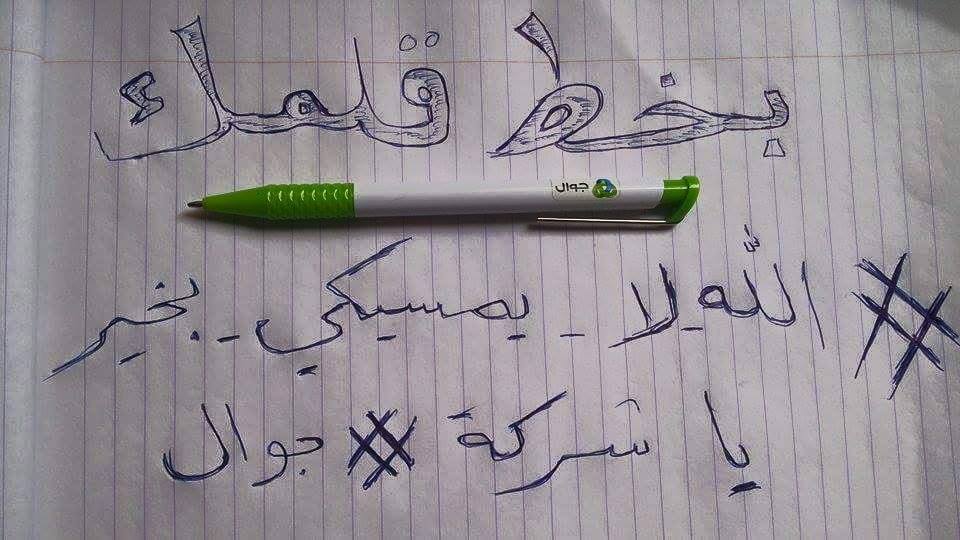 بخط قلمك
جوال
#الله_لا_يمسيكي_بخير
يا شركة #جوال